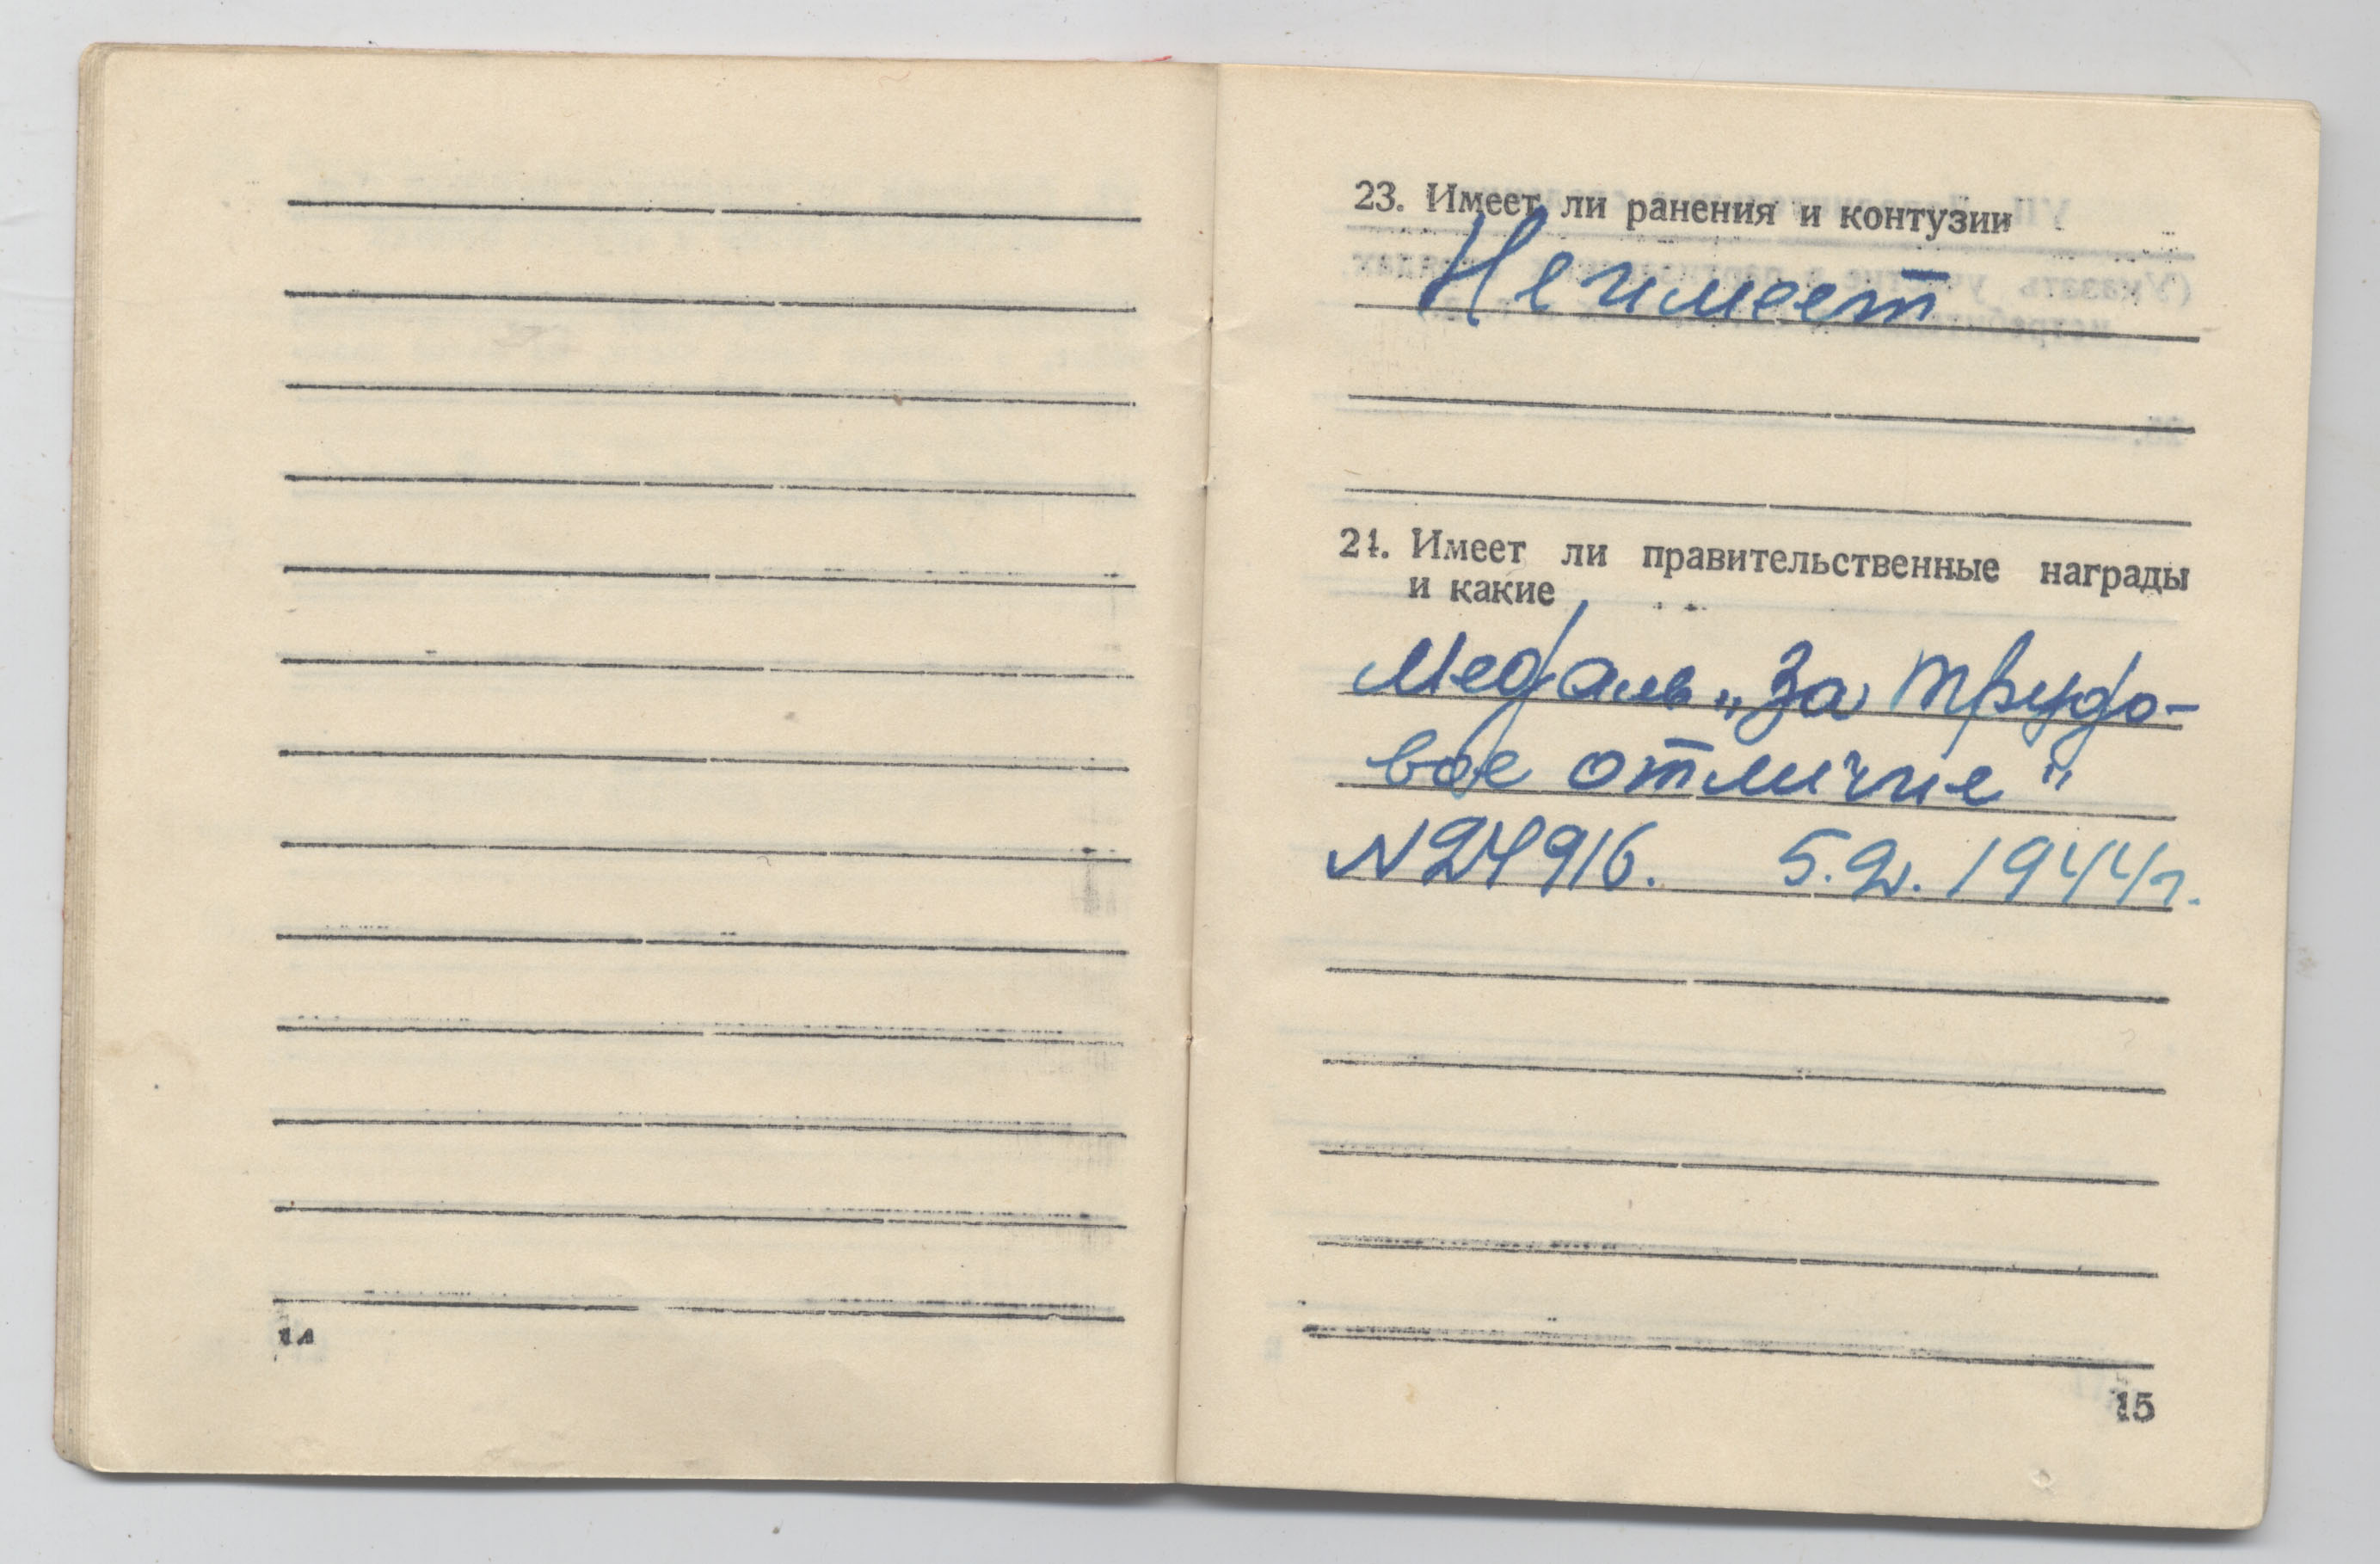 14
23. Имеет ли ранения и контузии
Не имеет
24. Имеет ли правительственные награды
и какие
Медаль „За трудо-
вое отличие"
N24916. 5.2. 1944г.
15